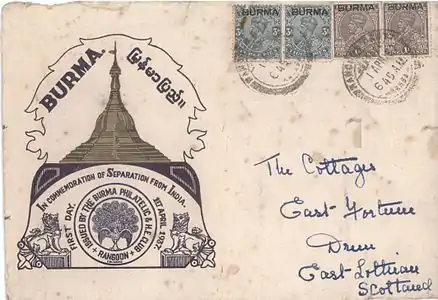 BURMA
BURMA
BURMA
BURMA
BURMA.
မြန်မာပြည်။
IN COMMEMORATION OF SEPARATION FROM INDIA.
FIRST DAY.
1ST APRIL 1937
ISSUED BY THE BURMA PHILATELIC & H.F. CLUB
RANGOON
The Cottages
East-Fortune
Drem
East-Lothian
Scotland